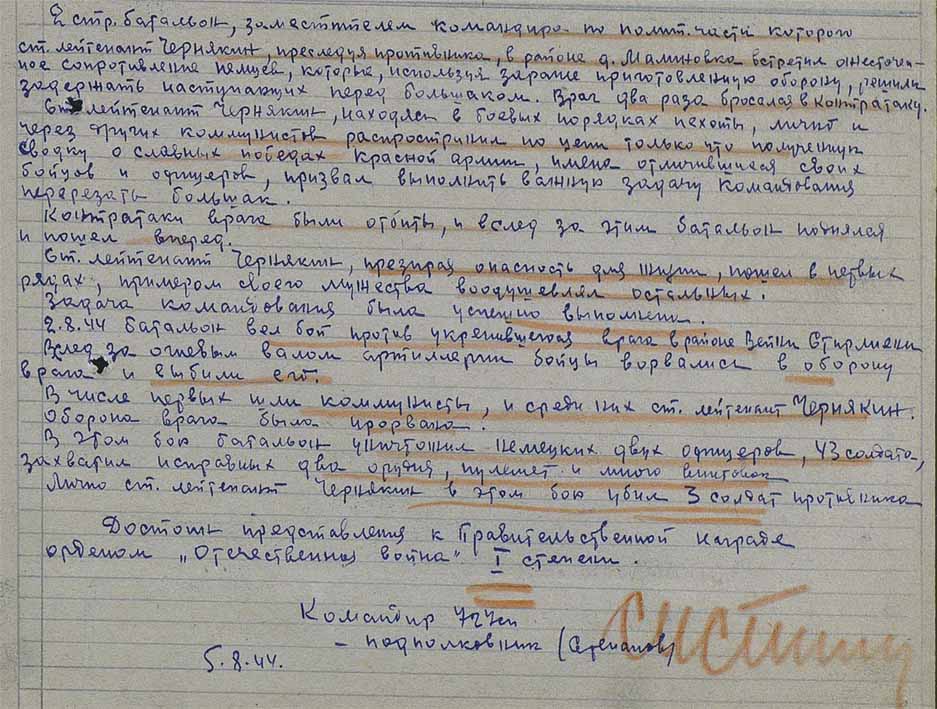 2 стр. батальон, заместителем командира по полит. части которого
ст. лейтенант Чернякин, преследуя противника, в районе д. Малиновка встретил ожесточен-
ное сопротивление немцев, которые, используя заранее приготовленную оборону, решили
задержать наступающих перед большаком. Враг два раза бросался в контратаку.
Ст. лейтенант Чернякин, находясь в боевых порядках пехоты, лично и
через других коммунистов распространил по цепи только что полученную
сводку о славных победах Красной армии, имена отличившихся своих
бойцов и офицеров, призвал выполнить важную задачу командования
перерезать большак.
Контратаки врага были отбиты, и вслед за этим батальон поднялся
и пошел вперед.
Ст. лейтенант Чернякин, презирая опасность для жизни, пошел в первых
рядах, примером своего мужества воодушевлял остальных.
Задача командования была успешно выполнена.
2.8.44 батальон вел бой против укрепившегося врага в районе Вейки Стирлиени
Вслед за огневым валом артиллерии бойцы ворвались в оборону
врага и выбили его.
В числе первых шли коммунисты, и среди них ст. лейтенант Чернякин.
Оборона врага была прорвана.
В этом бою батальон уничтожил немецких двух офицеров, 43 солдата,
захватил исправных два орудия, пулемет и много винтовок
Лично ст. лейтенант Чернякин в этом бою убил 3 солдат противника
Достоин представления к Правительственной награде
орденом „Отечественная война" I степени.
Командир 727 сп
– подполковник (Степанов)
5.8.44.